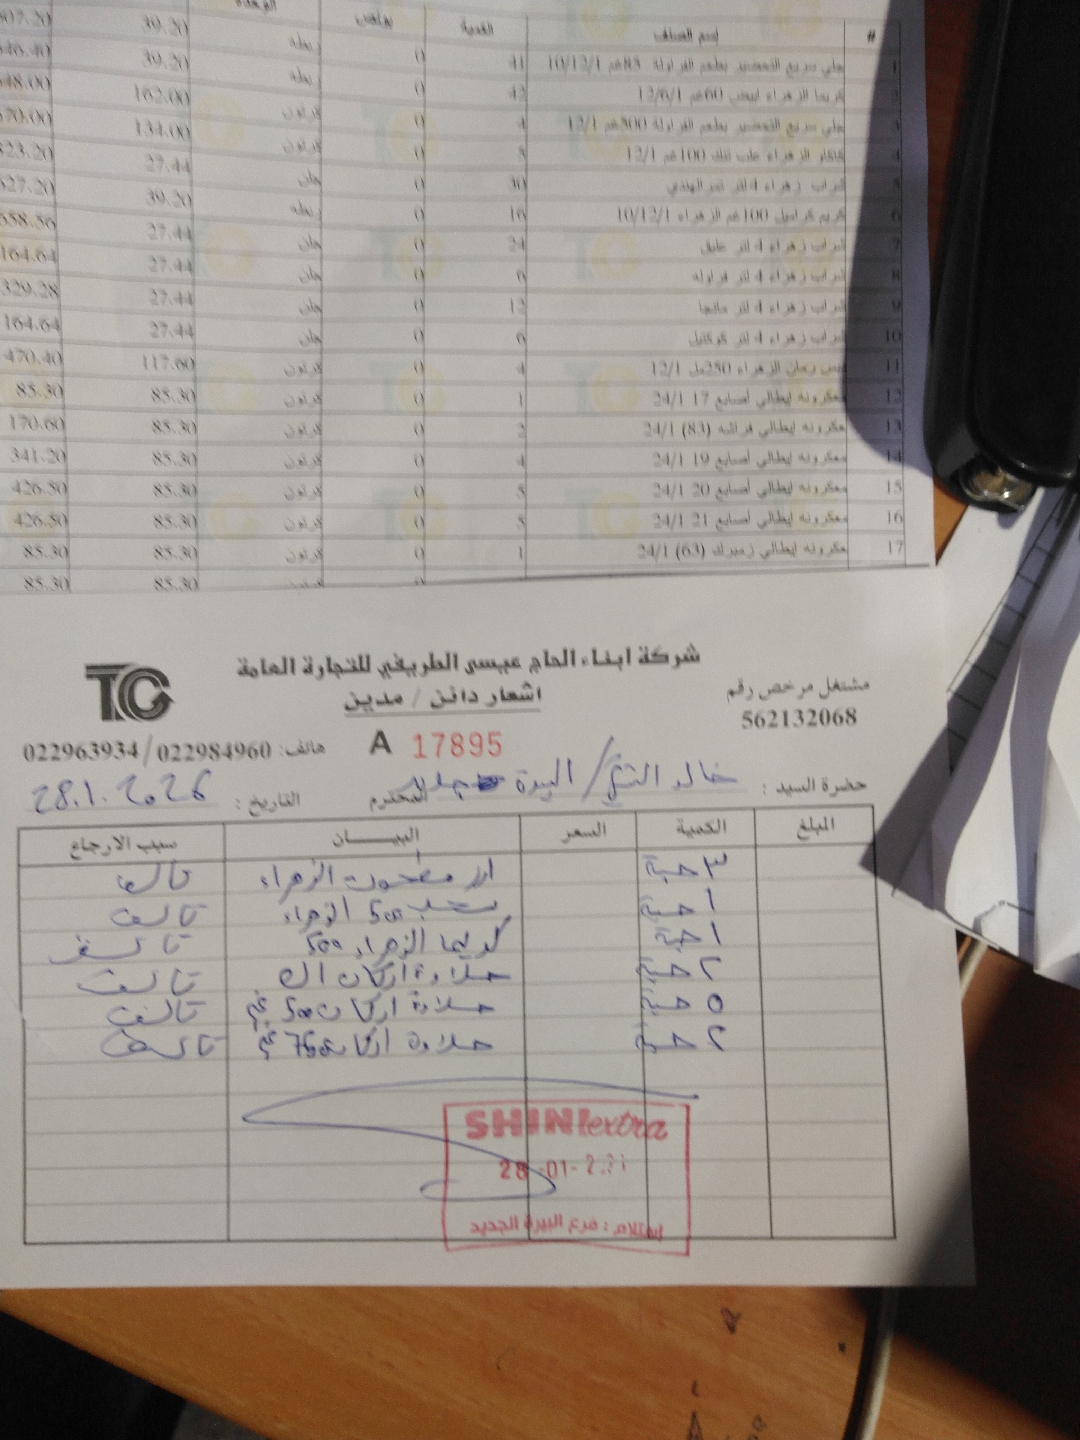 # اسم الصنف الكمية بونص الوحدة
1 جلي سريع التحضير بطعم الفراولة 85غم 10/12/1 41 0 ربطه 39.20 607.20
2 كريما الزهراء ابيض 60غم 12/6/1 42 0 ربطه 39.20 646.40
3 جلي سريع التحضير بطعم الفراولة 500غم 12/1 4 0 كرتون 162.00 648.00
4 كاكاو الزهراء علب تنك 100غم 12/1 5 0 كرتون 134.00 670.00
5 شراب زهراء 4 لتر تمر الهندي 30 0 جلن 27.44 823.20
6 كريم كراميل 100غم الزهراء 10/12/1 16 0 ربطه 39.20 627.20
7 شراب زهراء 4 لتر 24 0 جلن 27.44 658.56
8 شراب زهراء 4 لتر فراوله 6 0 جلن 27.44 164.64
9 شراب زهراء 4 لتر مانجا 12 0 جلن 27.44 329.28
10 شراب زهراء 4 لتر كوكتيل 6 0 جلن 27.44 164.64
11 دبس رمان الزهراء 250مل 12/1 4 0 كرتون 117.60 470.40
12 معكرونه إيطالي أصابع 17 24/1 1 0 كرتون 85.30 85.30
13 معكرونه إيطالي فراشه (83) 24/1 2 0 كرتون 85.30 170.60
14 معكرونه إيطالي أصابع 19 24/1 4 0 كرتون 85.30 341.20
15 معكرونه إيطالي أصابع 20 24/1 5 0 كرتون 85.30 426.50
16 معكرونه إيطالي أصابع 21 24/1 5 0 كرتون 85.30 426.50
17 معكرونه إيطالي زمبرك (63) 24/1 1 0 كرتون 85.30 85.30
85.30 85.30
شركة ابناء الحاج عيسى الطريفي للتجارة العامة
TC
اشعار دائن / مدين
مشتغل مرخص رقم
562132068
A 17895
هاتف: 022984960/022963934
حضرة السيد : خالد / البيرة جديد المحترم
التاريخ : 28.1.2026
المبلغ الكمية السعر البيـــــــان سبب الارجاع
٣ حبة ارز مطحون الزهراء تالف
١ حبة سحلب 500 الزهراء تالف
١ حبة كريما الزهراء 500 تالف
٢ حبة حلاوة اركان تالف
٥ حبة حلاوة اركان 500 غم تالف
٢ حبة حلاوة اركان 750 غم تالف
SHINI extra
28 -01-
استلام : فرع البيرة الجديد